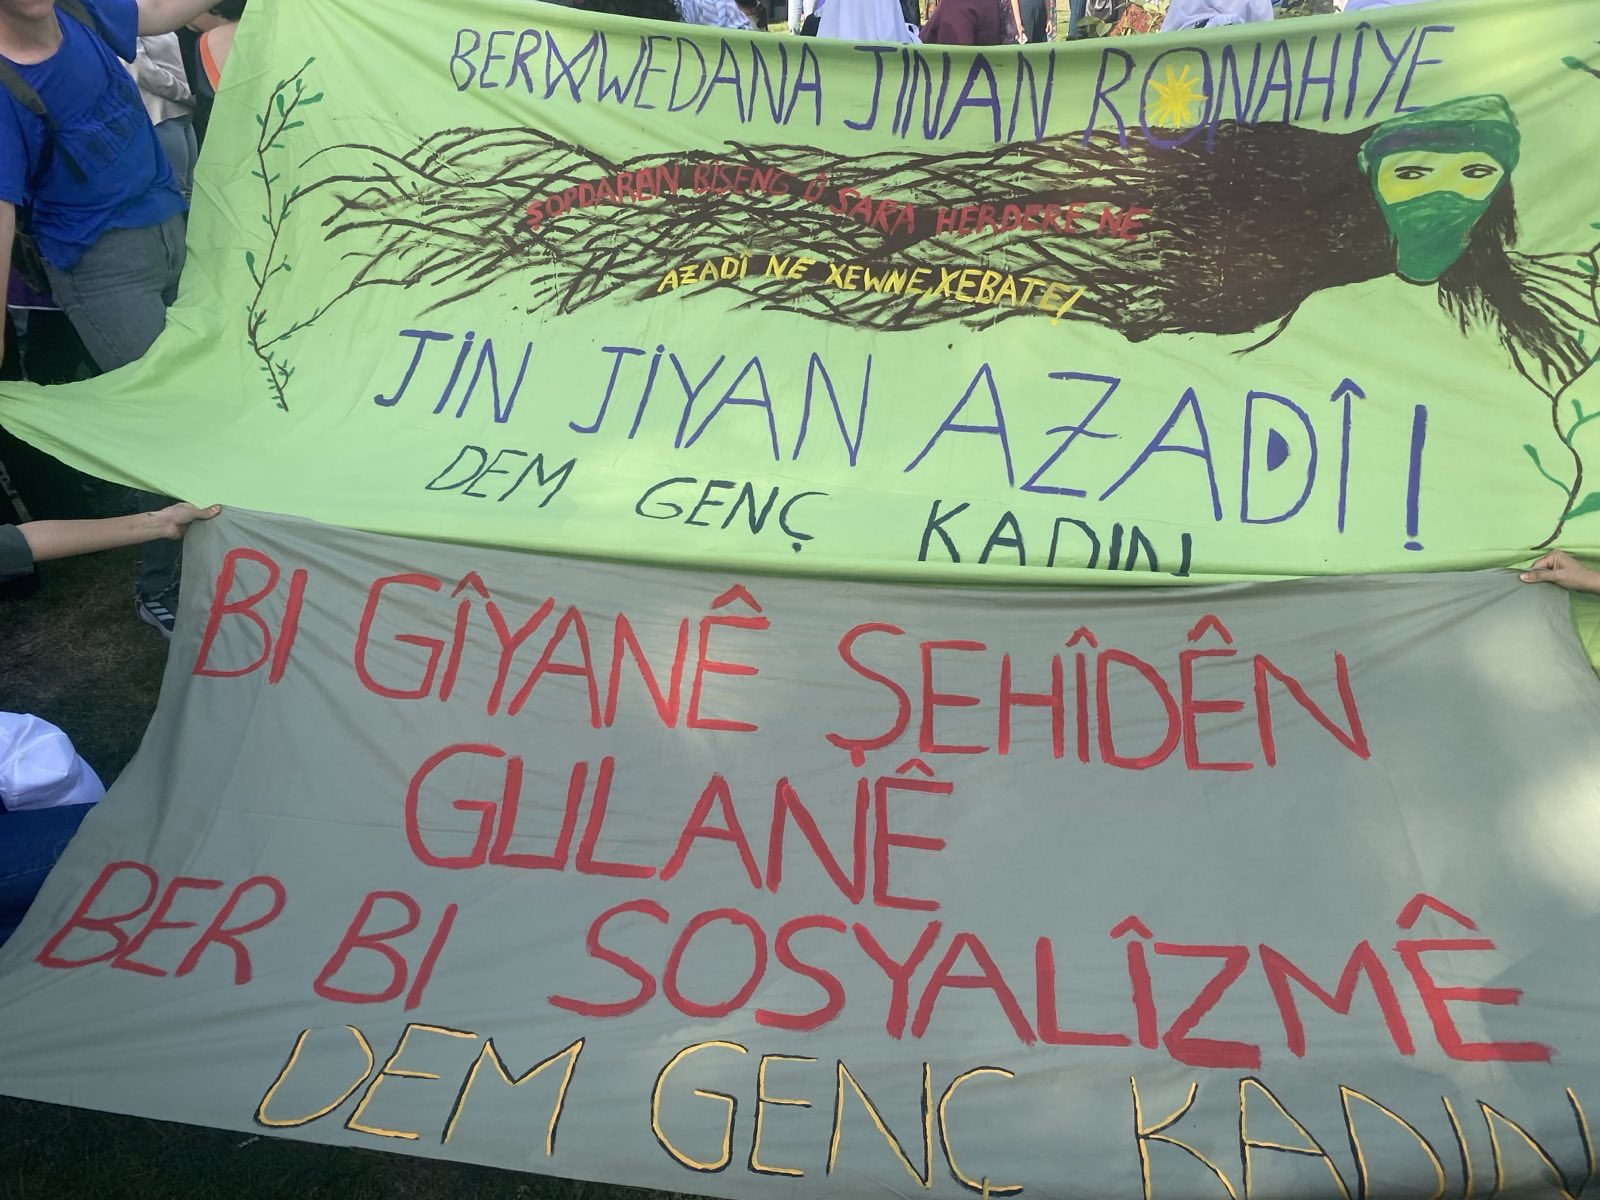 BERXWEDANA JİNAN RONAHÎYE
ŞOPDARÊN BISENG Û SARA HERDERE NE
AZADÎ NE XEWNE, XEBATE!
JİN JİYAN AZADÎ!
DEM GENÇ KADIN
BI GÎYANÊ ŞEHÎDÊN
GULANÊ
BER BI SOSYALÎZMÊ
DEM GENÇ KADIN